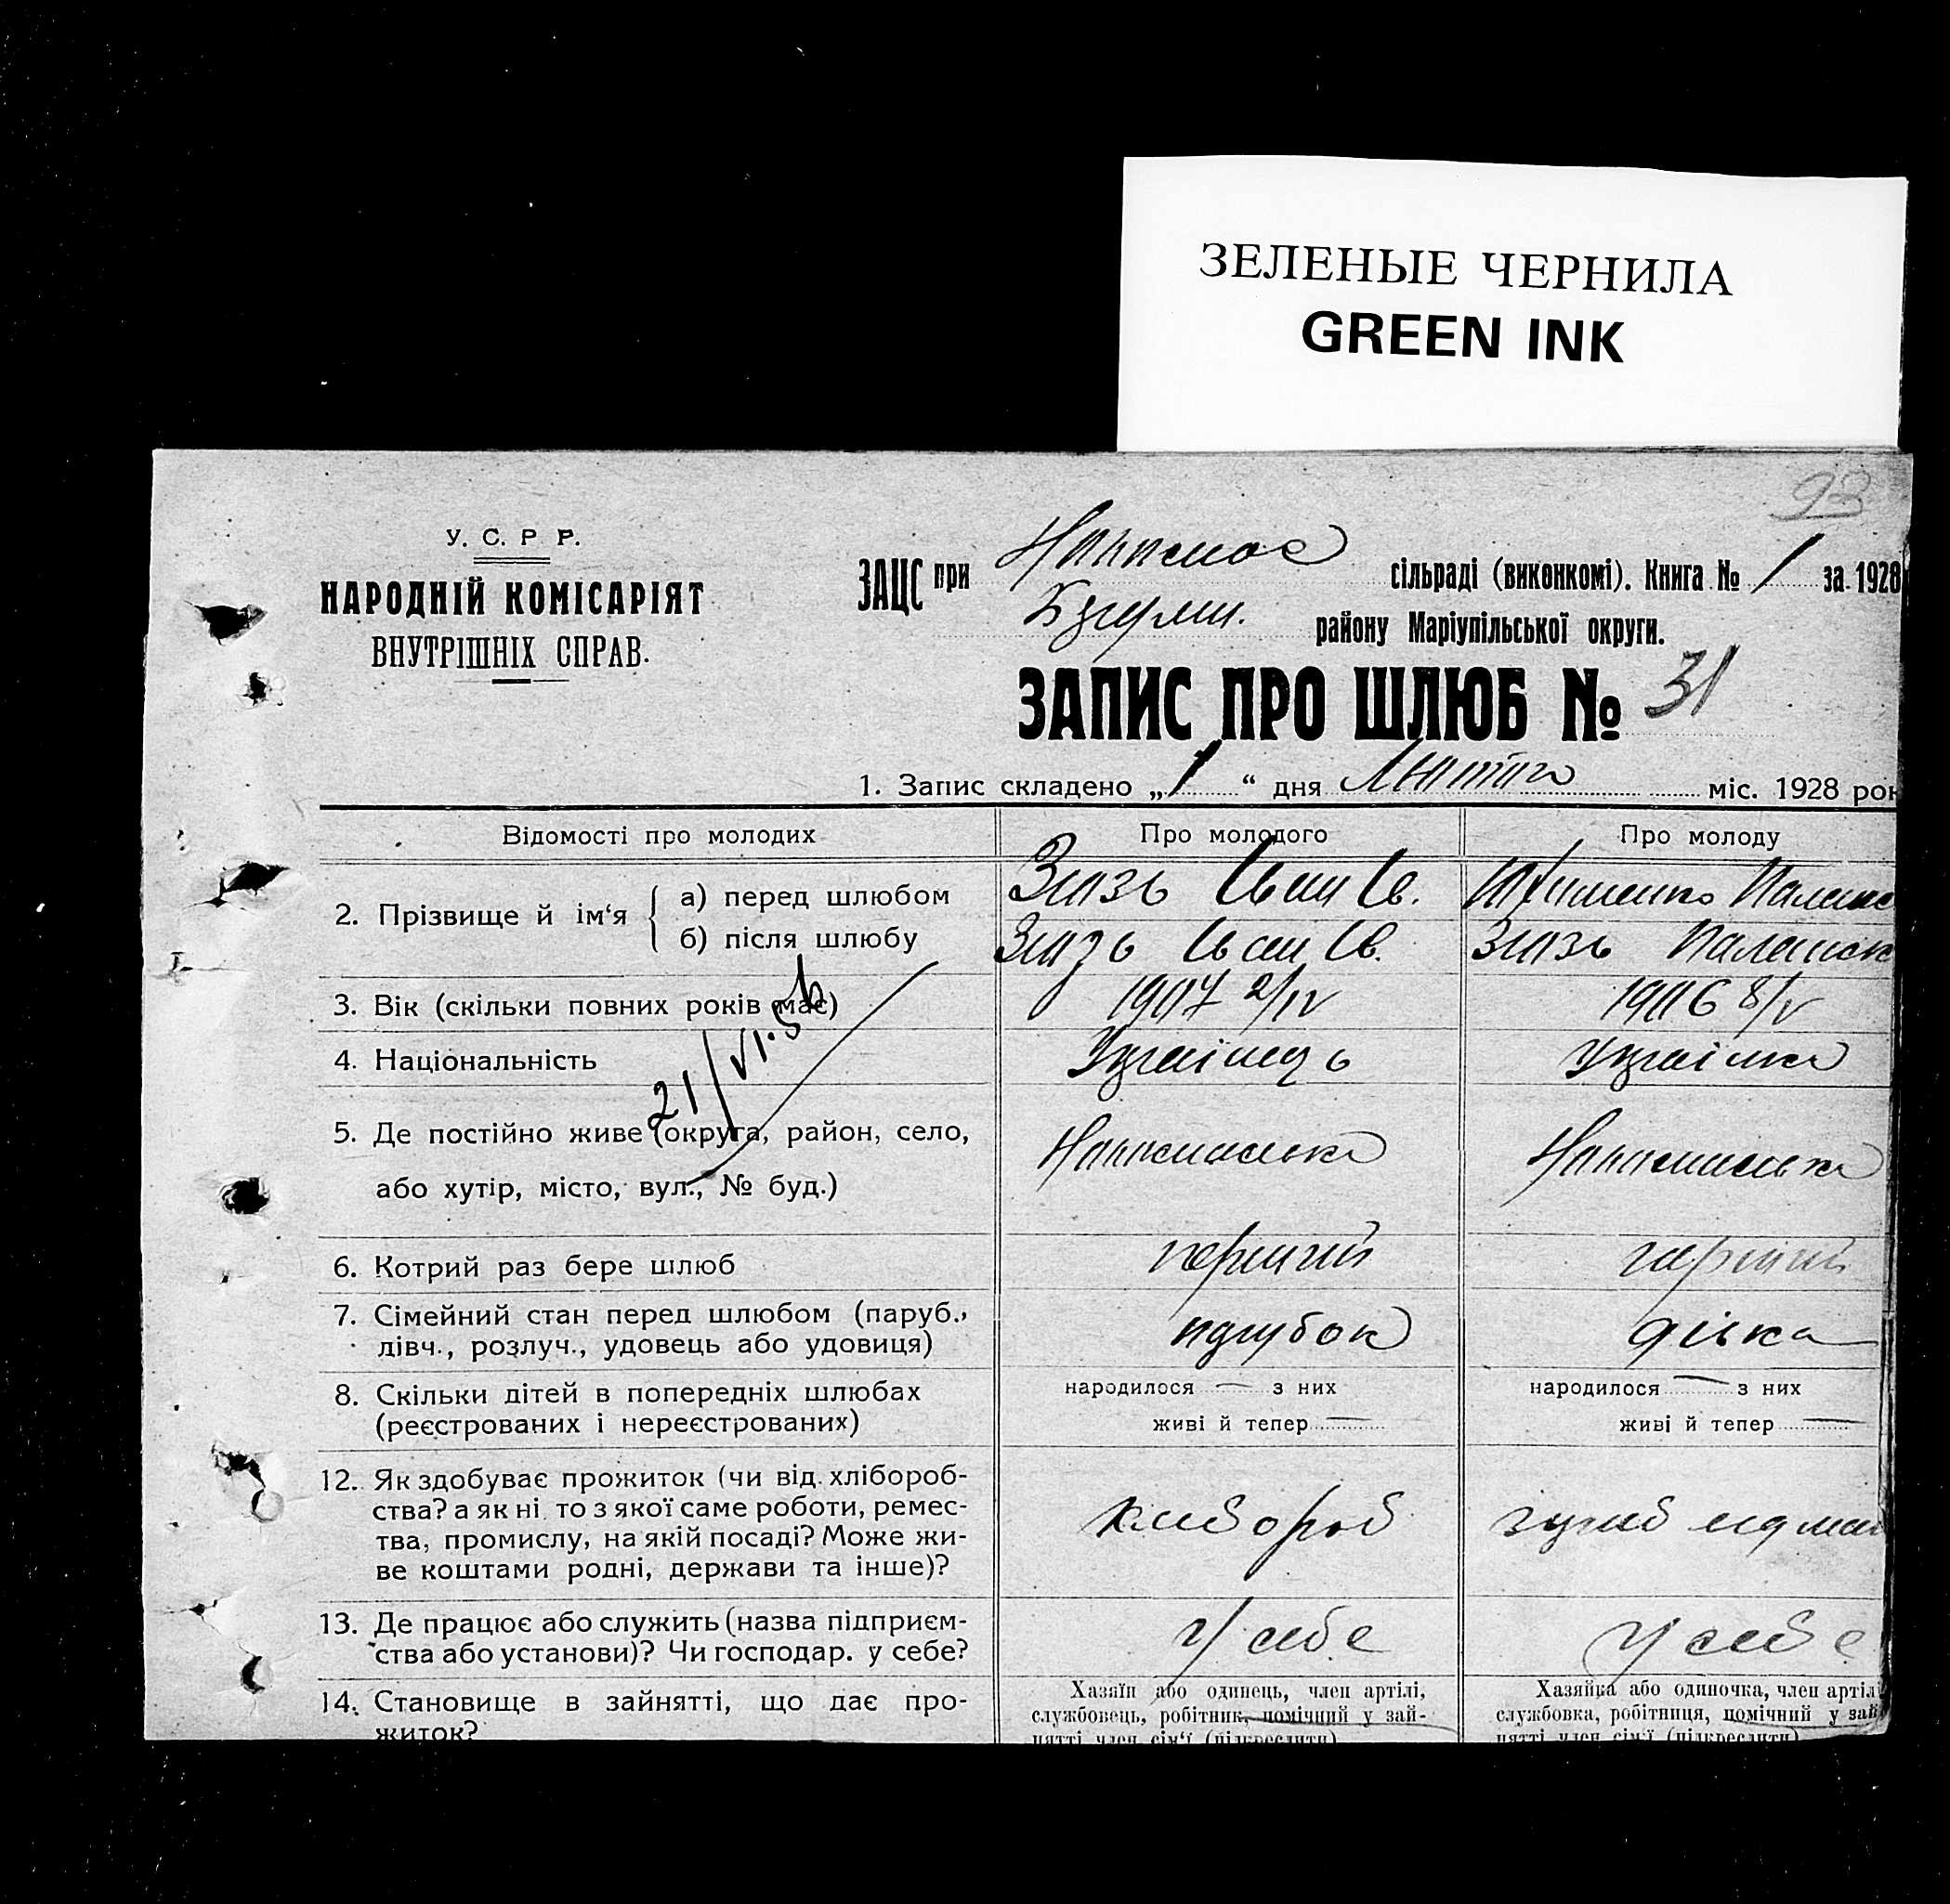 ЗЕЛЕНЫЕ ЧЕРНИЛА
GREEN INK
93
У. С. Р Р.
НАРОДНІЙ КОМІСАРІЯТ
ВНУТРІШНІХ СПРАВ.
ЗАЦС при сільраді (виконкомі). Книга № 1 за 1928
району Маріупільської округи.
ЗАПИС ПРО ШЛЮБ № 31
1. Запис складено „1“ дня Лютого міс. 1928 рок
Відомості про молодих Про молодого Про молоду
2. Прізвище й ім‘я а) перед шлюбом
б) після шлюбу
3. Вік (скільки повних років має) 1907 2/IV 1906 8/V
21/VI.56
4. Національність Українець Українка
5. Де постійно живе (округа, район, село,
або хутір, місто, вул., № буд.)
6. Котрий раз бере шлюб перший перший
7. Сімейний стан перед шлюбом (паруб.,
дівч., розлуч., удовець або удовиця) парубок дівка
8. Скільки дітей в попередніх шлюбах народилося — з них народилося — з них
(реєстрованих і нереєстрованих) живі й тепер — живі й тепер —
12. Як здобуває прожиток (чи від хлібороб-
ства? а як ні то з якої саме роботи, ремес-
тва, промислу, на якій посаді? Може жи-
ве коштами родні, держави та інше)? хлібороб
13. Де працює або служить (назва підприєм-
ства або установи)? Чи господар. у себе? У себе У себе
14. Становище в зайнятті, що дає про-
житок?
Хазяїн або одинець, член артілі,
службовець, робітник, помічний у зай-
нятті член сім‘ї (підкреслити)
Хазяйка або одиночка, член артілі
службовка, робітниця, помічний у зай
нятті член сім‘ї (підкреслити)